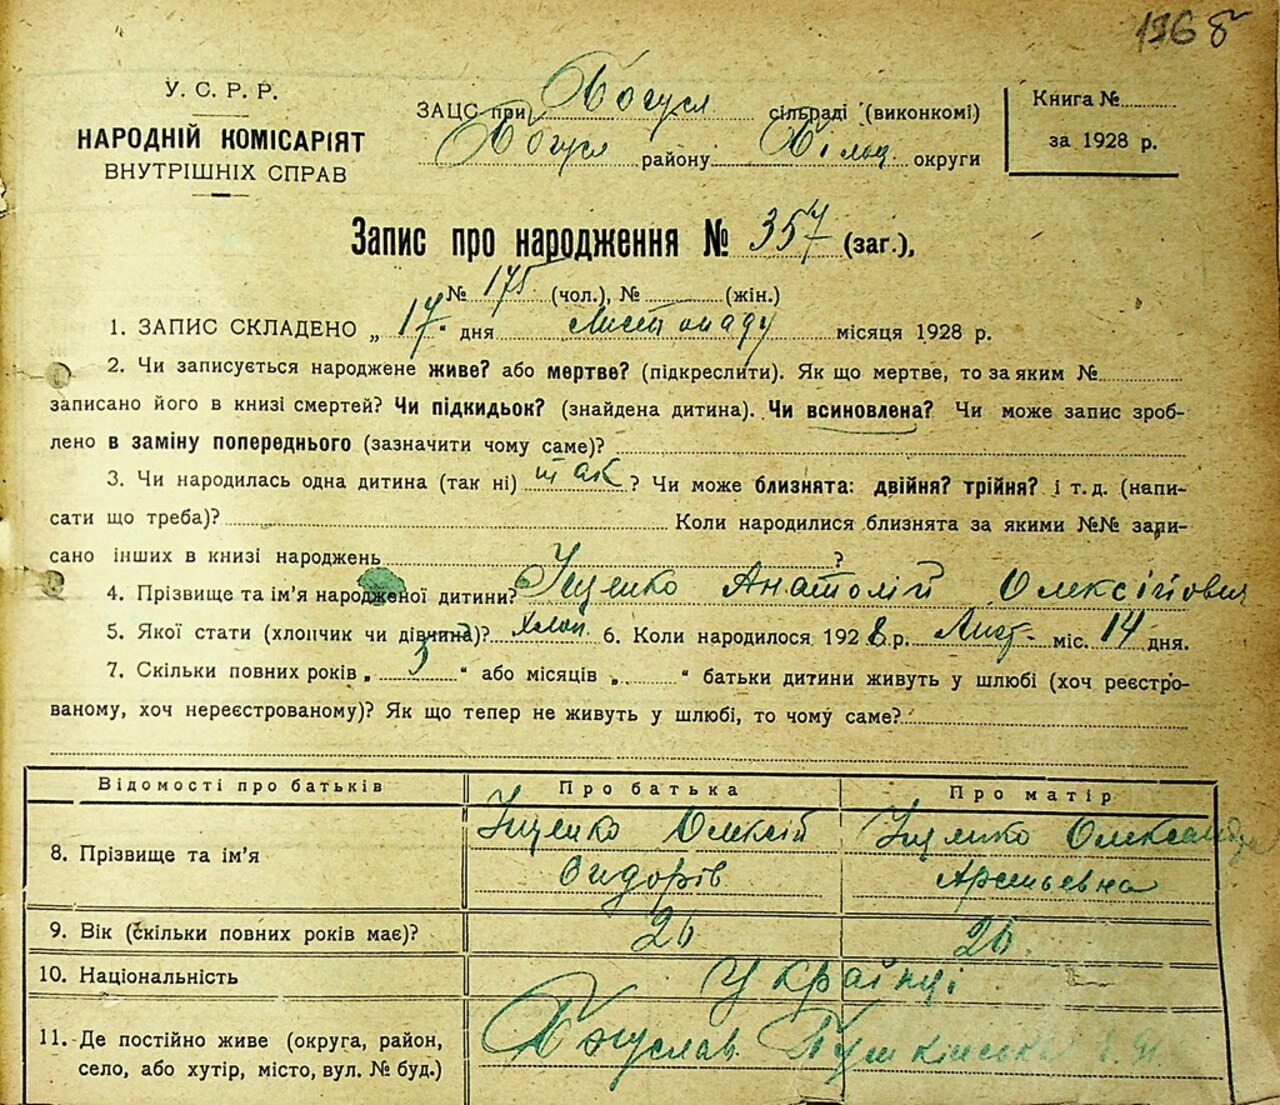 1968
У. С. Р. Р.
НАРОДНІЙ КОМІСАРІЯТ
ВНУТРІШНІХ СПРАВ
ЗАЦС при Богусл сільраді (виконкомі)
Богусл району Білц. округи
Книга №
за 1928 р.
Запис про народження № 357 (заг.),
№ 175 (чол.), № (жін.)
1. ЗАПИС СКЛАДЕНО „ 17 “ дня листопаду місяця 1928 р.
2. Чи записується народжене живе? або мертве? (підкреслити). Як що мертве, то за яким №
записано його в книзі смертей? Чи підкидьок? (знайдена дитина). Чи всиновлена? Чи може запис зроб-
лено в заміну попереднього (зазначити чому саме)?
3. Чи народилась одна дитина (так ні) так ? Чи може близнята: двійня? трійня? і т. д. (напи-
сати що треба)? Коли народилися близнята за якими №№ запи-
сано інших в книзі народжень ?
4. Прізвище та ім’я народженої дитини? Іщенко Анатолій Олексійович
5. Якої стати (хлопчик чи дівчина)? хлоп. 6. Коли народилося 1928 р. Лист. міс. 14 дня.
7. Скільки повних років „ 3 “ або місяців „ “ батьки дитини живуть у шлюбі (хоч реєстро-
ваному, хоч нереєстрованому)? Як що тепер не живуть у шлюбі, то чому саме?
Відомості про батьків Про батька Про матір
8. Прізвище та ім’я Іщенко Олексій Сидорів Іщенко Олександра Арсеньевна
9. Вік (скільки повних років має)? 26 26
10. Національність Українці
11. Де постійно живе (округа, район,
село, або хутір, місто, вул. № буд.) Богуслав Пушкінська